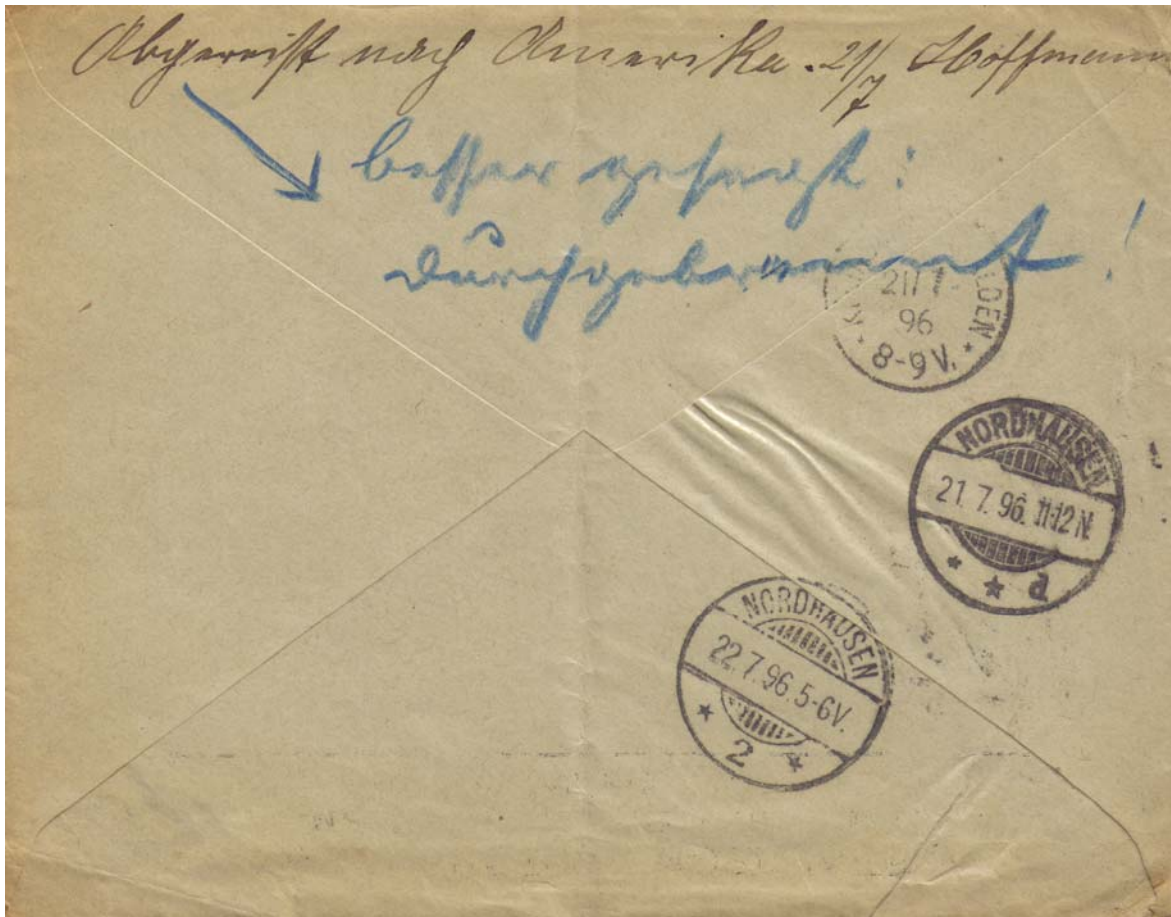 Abgereist nach Amerika. 21/7 Hoffmann
besser gesagt:
durchgebrannt!
21/7
96
8-9V.
LDEN
NORDHAUSEN
21.7.96.11-12N.
* * d
NORDHAUSEN
22.7.96.5-6V.
* 2 *